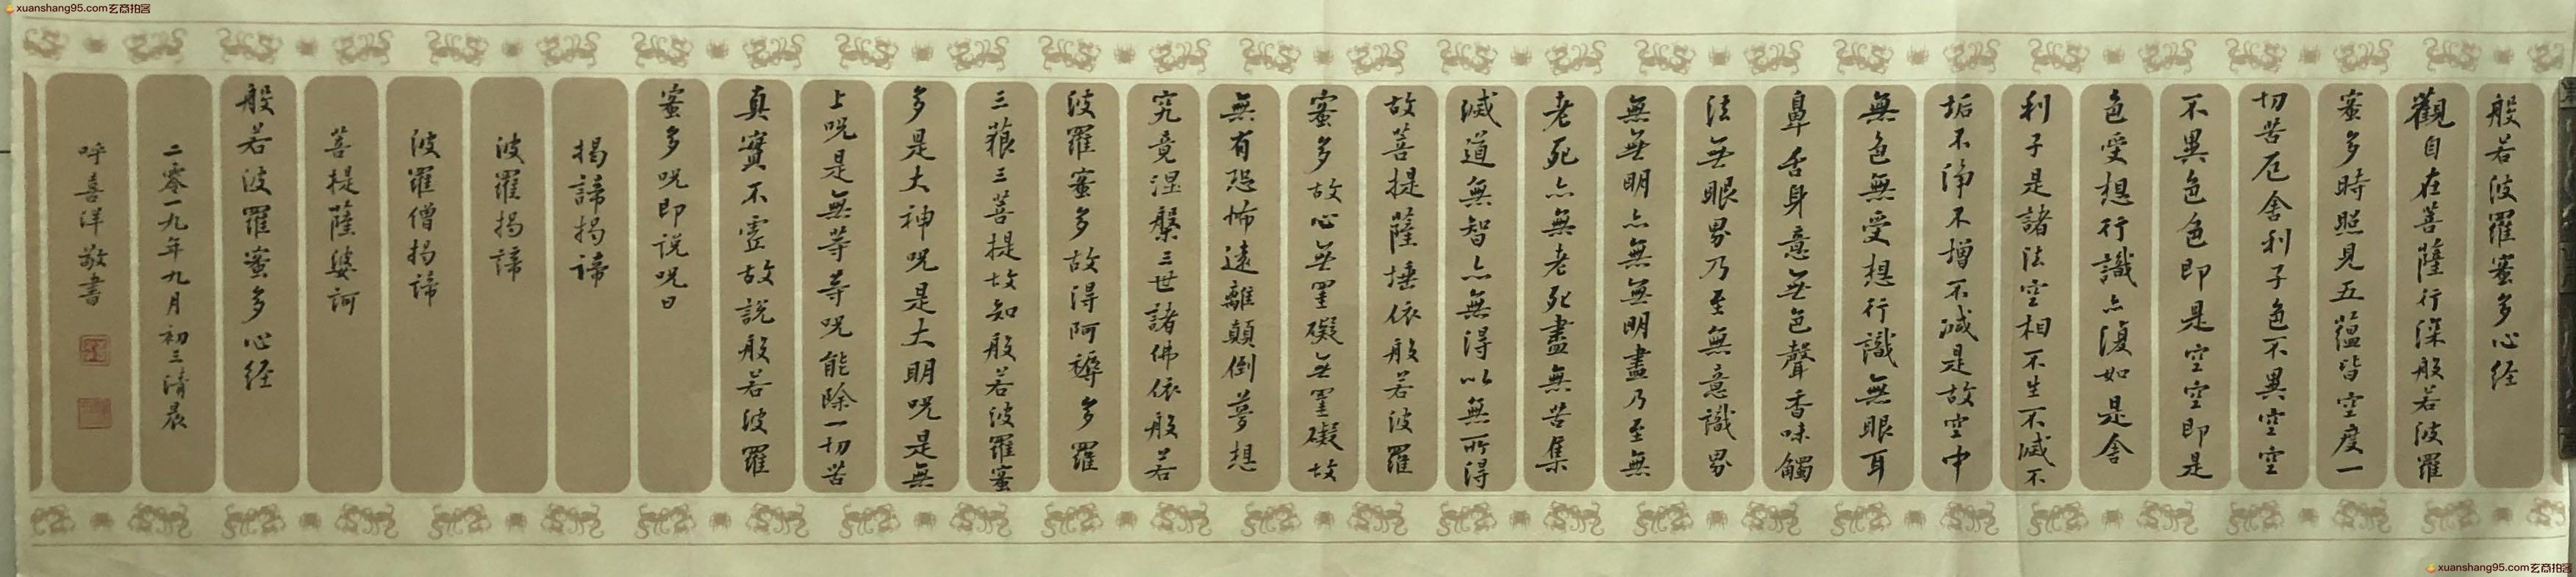 xuanshang95.com玄商拍客
般若波羅蜜多心经
觀自在菩薩行深般若波羅
蜜多時照見五蕴皆空度一
切苦厄舍利子色不異空空
不異色色即是空空即是
色受想行識亦復如是舍
利子是諸法空相不生不滅不
垢不淨不增不減是故空中
無色無受想行識無眼耳
鼻舌身意無色聲香味觸
法無眼界乃至無意識界
無無明亦無無明盡乃至無
老死亦無老死盡無苦集
滅道無智亦無得以無所得
故菩提薩埵依般若波羅
蜜多故心無罣礙無罣礙故
無有恐怖遠離顛倒夢想
究竟涅槃三世諸佛依般若
波羅蜜多故得阿耨多羅
三藐三菩提故知般若波羅蜜
多是大神呪是大明呪是無
上呪是無等等呪能除一切苦
真實不虛故説般若波羅
蜜多呪即说呪曰
揭諦揭諦
波羅揭諦
波羅僧揭諦
菩提薩婆訶
般若波羅蜜多心经
二零一九年九月初三清晨
呼喜洋敬書
xuanshang95.com玄商拍客